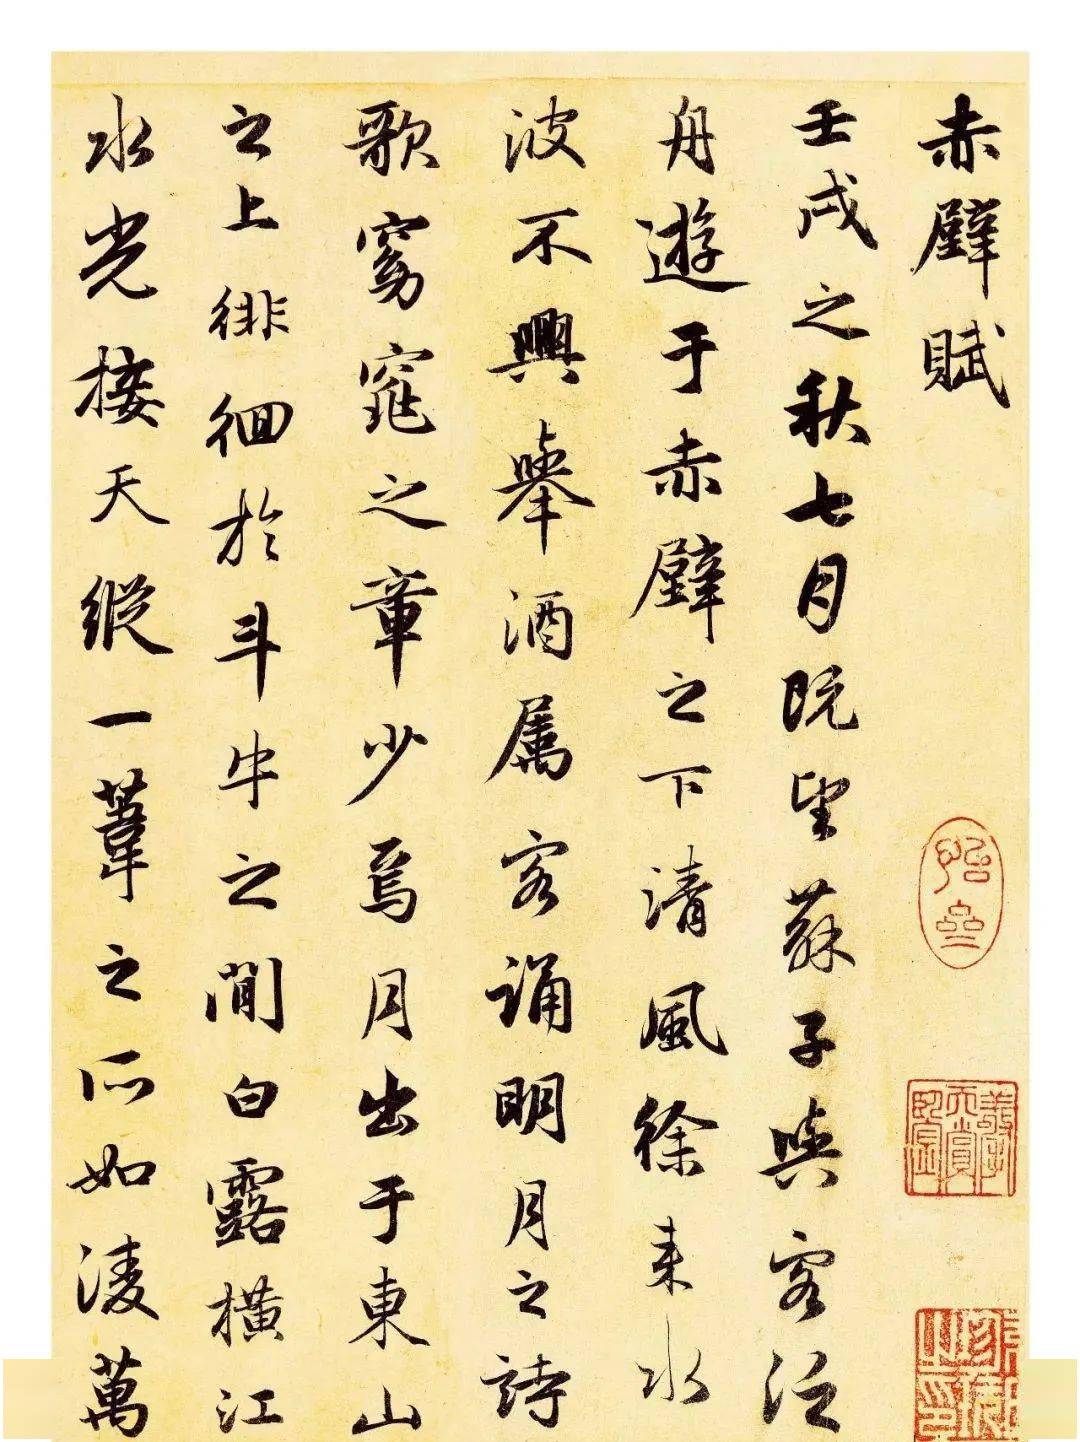 赤壁賦
壬戌之秋七月既望蘇子與客泛
舟遊于赤壁之下清風徐来水
波不興舉酒属客誦明月之詩
歌窈窕之章少焉月出于東山
之上徘徊於斗牛之間白露橫江
水光接天縱一葦之所如凌萬